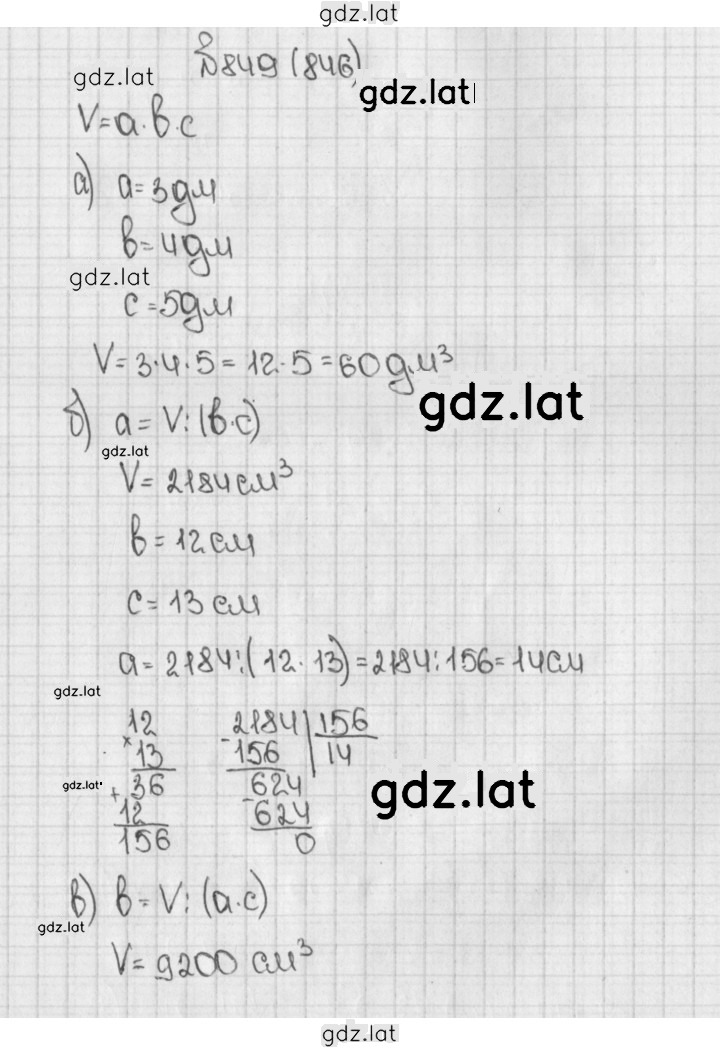 gdz.lat
№849 (846)
gdz.lat
gdz.lat
V=a·b·c
а) a=3дм
b=4дм
gdz.lat
c=5дм
V=3·4·5=12·5=60дм³
gdz.lat
б) a=V:(b·c)
gdz.lat
V=2184см³
b=12см
c=13см
a=2184:(12·13)=2184:156=14см
gdz.lat
12 2184 156
×13 -156 14
gdz.lat
+36 624
gdz.lat
12 -624
156 0
в) b=V:(a·c)
gdz.lat
V=9200 см³
gdz.lat